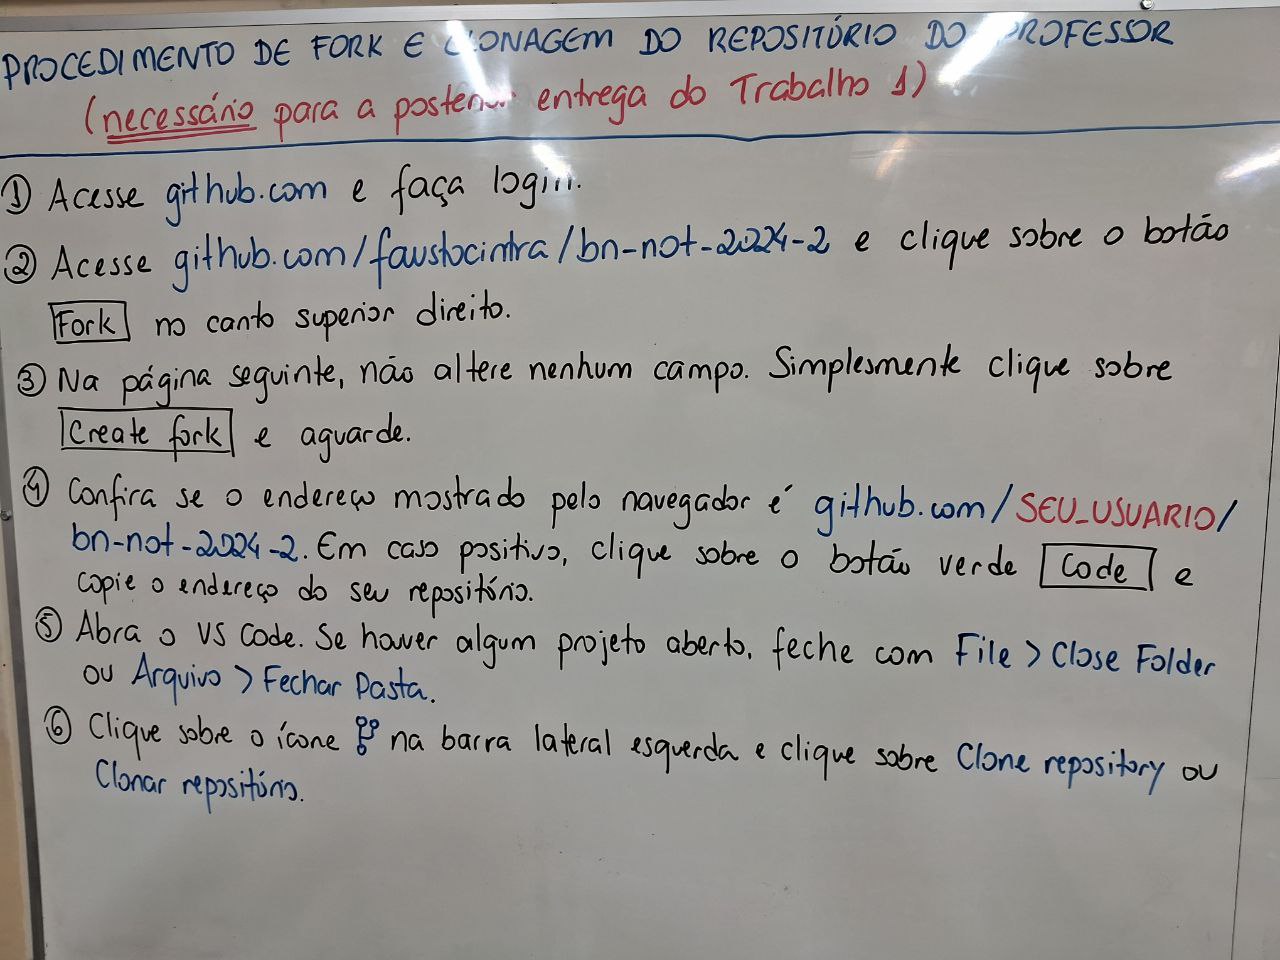 PROCEDIMENTO DE FORK E CLONAGEM DO REPOSITÓRIO DO PROFESSOR
(necessário para a posterior entrega do Trabalho 1)
① Acesse github.com e faça login.
② Acesse github.com/faustocintra/bn-not-2024-2 e clique sobre o botão
Fork no canto superior direito.
③ Na página seguinte, não altere nenhum campo. Simplesmente clique sobre
Create fork e aguarde.
④ Confira se o endereço mostrado pelo navegador é github.com/SEU_USUARIO/
bn-not-2024-2. Em caso positivo, clique sobre o botão verde Code e
copie o endereço do seu repositório.
⑤ Abra o VS Code. Se houver algum projeto aberto, feche com File > Close Folder
ou Arquivo > Fechar Pasta.
⑥ Clique sobre o ícone na barra lateral esquerda e clique sobre Clone repository ou
Clonar repositório.